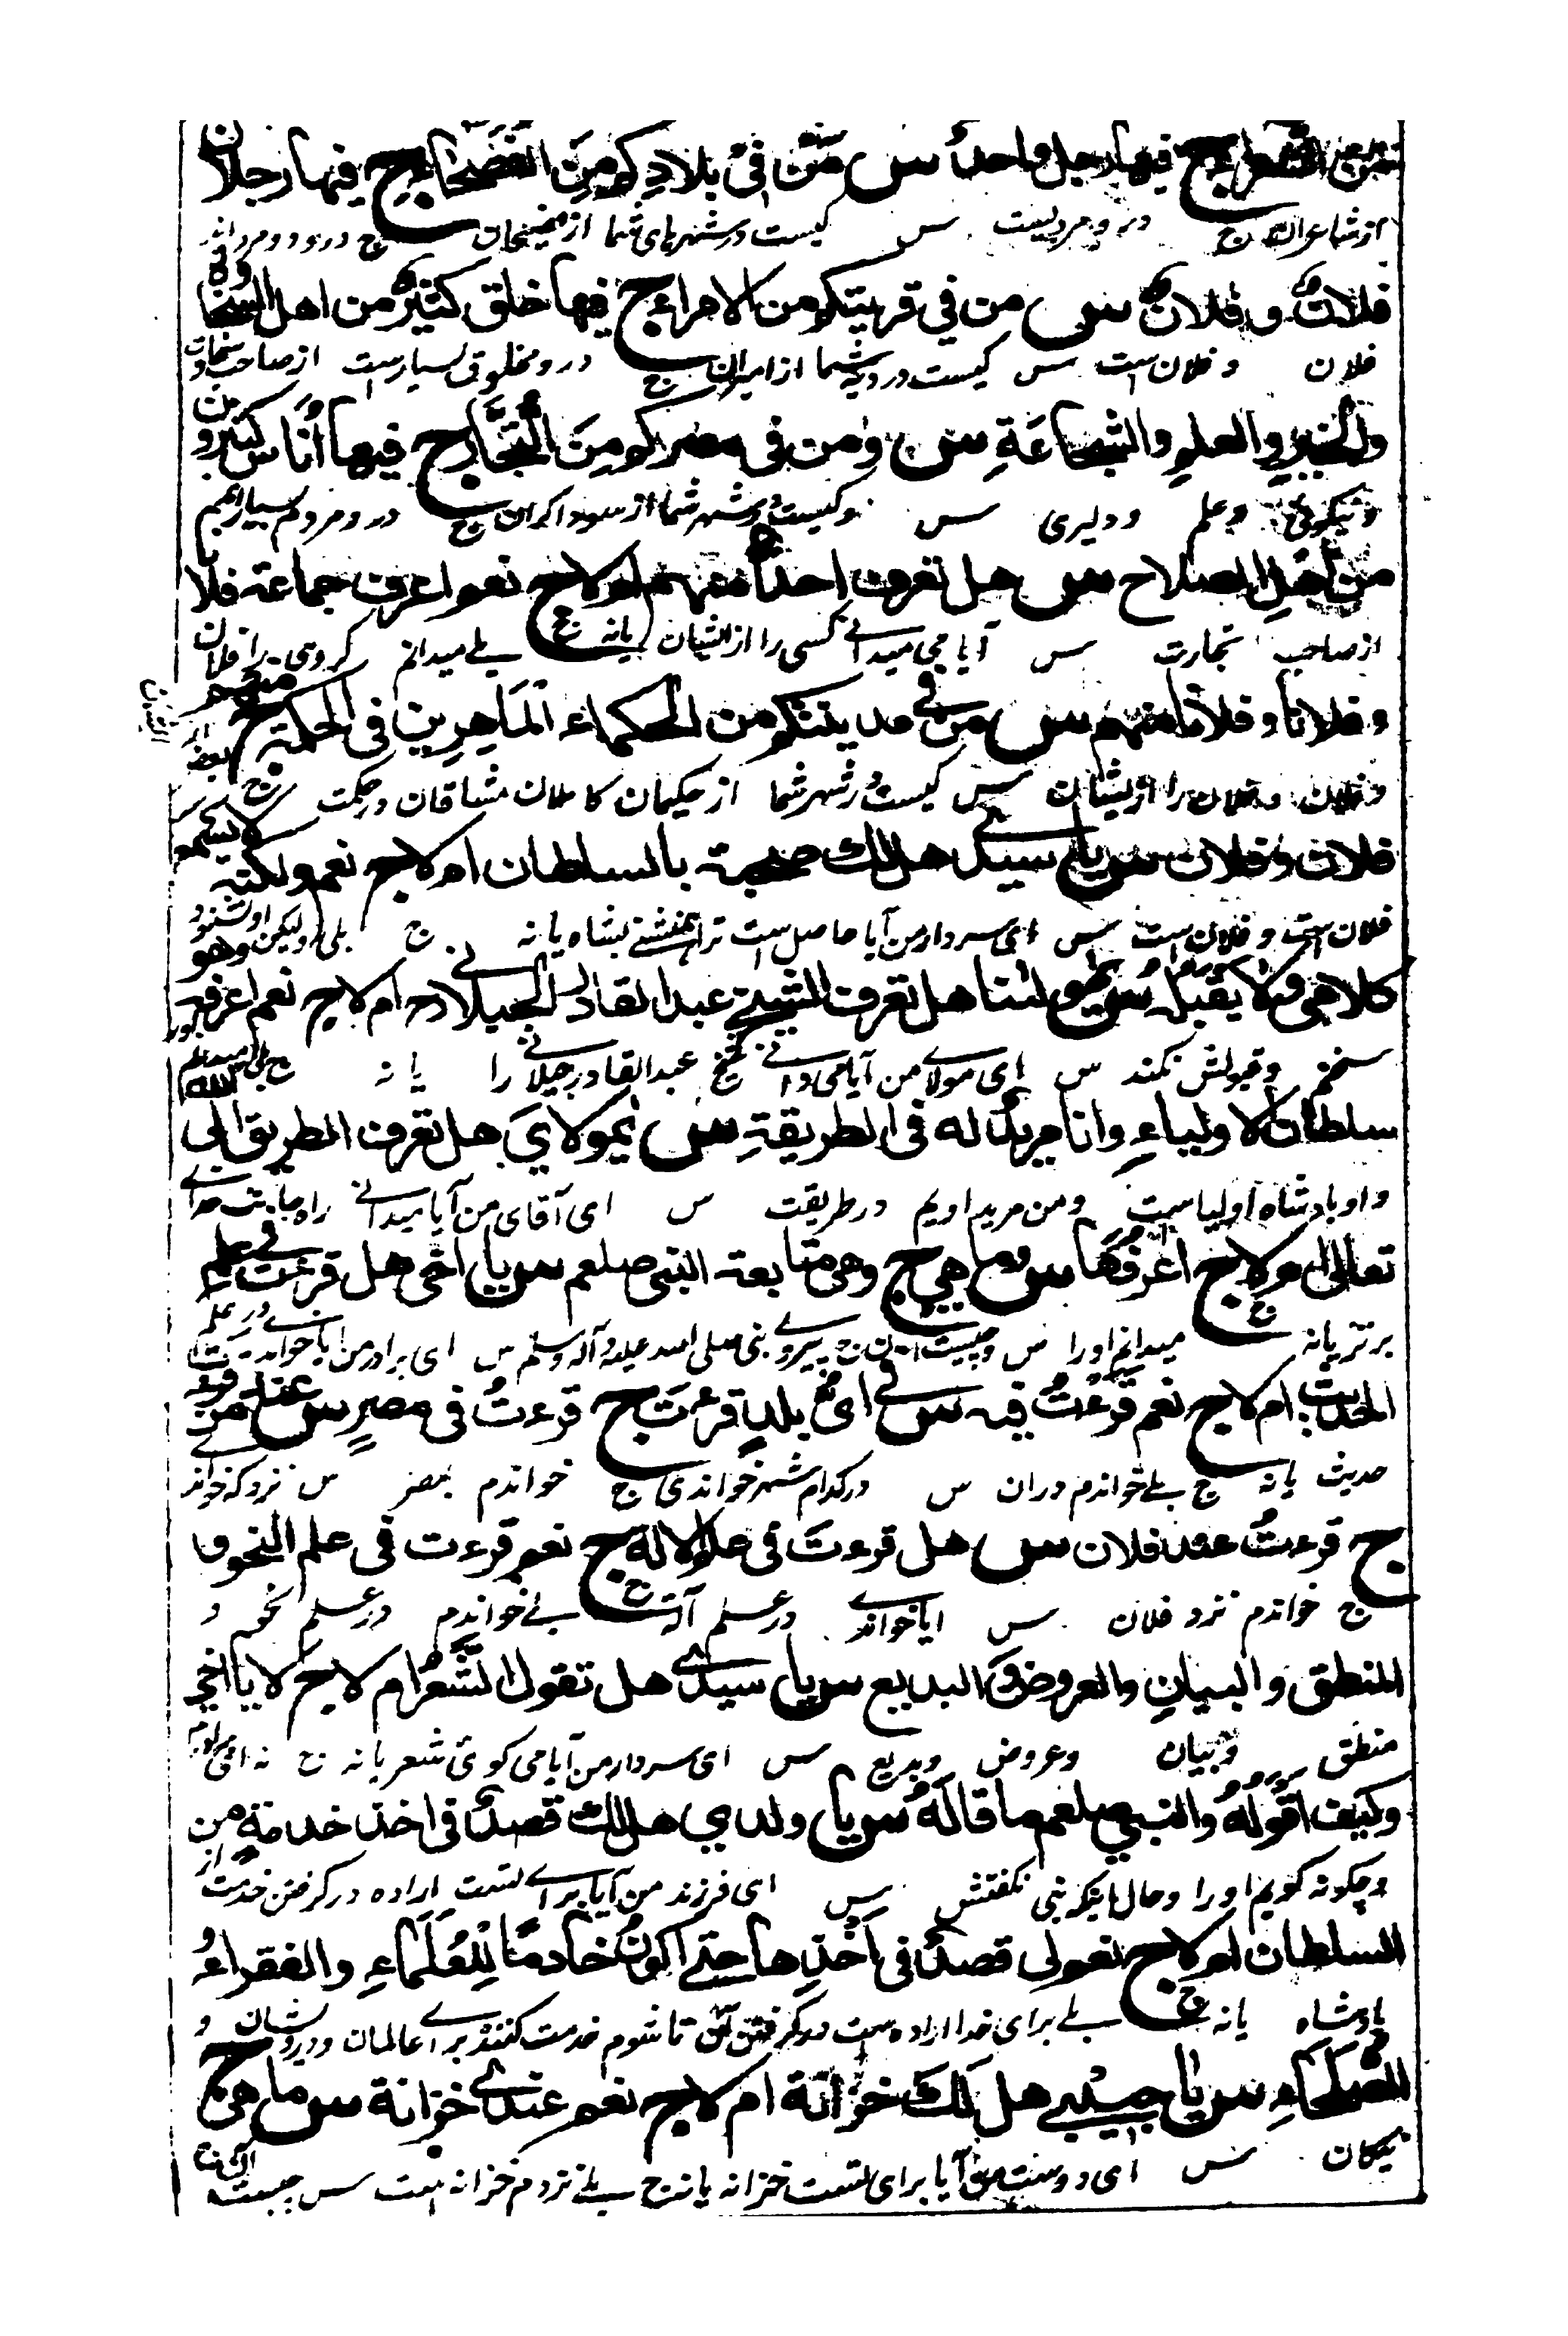 من الشعراء ج فيها رجل واحد س من في بلادكم من الفصحاء ج فيها رجلان
از شاعران ج درو مردیست س کیست در شهرهای شما از فصیحان ج درو دو مرد اند
فلان و فلان س من في قريتكم من الامراء ج فيها خلق كثير من اهل السخاوة
فلان و فلان است س کیست در دیه شما از امیران ج درو مخلوقی بسیارست از صاحب سخاوت
والخير والعلم والشجاعة س ومن في مصركم من التجار ج فيها أناس كثيرون
و نیکوئی و علم و دلیری س و کیست در شهر شما از سوداگران ج درو مردم بسیار
من أهل الصلاح س هل تعرف احدا منهم ام لا ج نعم اعرف جماعة فلانا
از صاحب تجارت س آیا می میدانی کسی را از ایشان یا نه ج بلے میدانم گروهی را فلان
وفلانا وفلانا منهم س من في مدينتكم من الحكماء الماهرين في الحكمة ج
و فلان و فلان را از ایشان س کیست در شهر شما از حکیمان کاملان مشاقان در حکمت ج
فلان وفلان س يا سيدي هل لك صحبة بالسلطان ام لا ج نعم ولكنه لا يسمع
فلان است و فلان است س ای سردار من آیا حاصل است ترا همنشینی بشاه یا نه ج بلی ولیکن او نشنود
كلامي ولا يقبله س يا مولانا هل تعرف الشيخ عبد القادر الجيلاني ام لا ج نعم اعرفه وهو
سخنم و قبولش نکند س ای مولای من آیا می دانی شیخ عبد القادر جیلانی را یا نه ج
سلطان الاولياء وانا مريد له في الطريقة س يا مولاي هل تعرف الطريق الى الله
و او بادشاه اولیاست و من مرید اویم در طریقت س ای آقای من آیا میدانی راه جانب خدای
تعالى ام لا ج اعرفها س وما هي ج وهي متابعة النبي صلعم س يا اخي هل قرءت في علم
برتر یا نه ج میدانم او را س و چیست آن ج پیروی نبی صلی الله علیه و آله وسلم س ای برادر من آیا خواندی در علم
الحديث ام لا ج نعم قرءت فيه س في اى بلد قرءت ج قرءت في مصر س عند من
حدیث یا نه ج بلے خواندم دران س در کدام شهر خواندی ج خواندم بمصر س نزد که خواندی
ج قرءت عند فلان س هل قرءت في علم الالة ج نعم قرءت في علم النحو و
ج خواندم نزد فلان س ایا خواندی در علم آلت ج بلے خواندم در علم نحو و
المنطق والبيان والعروض والبديع س يا سيدي هل تقول الشعر ام لا ج لا يا اخي
منطق و بیان و عروض و بدیع س ای سردار من آیا می گوئی شعر یا نه ج نه ای برادرم
وكيف اقوله والنبي صلعم ما قاله س يا ولدي هل لك قصد في اخذ خدمة من
و چگونه گویم او را و حال اینکه نبی نگفتش س ای فرزند من آیا برای تست اراده در گرفتن خدمت از
السلطان ام لا ج نعم لي قصد في أخذها حتى اكون خادما للعلماء والفقراء و
بادشاه یا نه ج بلے برای خدا اراده است در گرفتن تا شوم خدمت کننده برای عالمان و درویشان و
الصلحاء س يا حبيبي هل لك خزانة ام لا ج نعم عندي خزانة س ما هي ج
نیکان س ای دوست من آیا برای تست خزانه یا نه ج بلے نزدم خزانه است س چیست آن ج